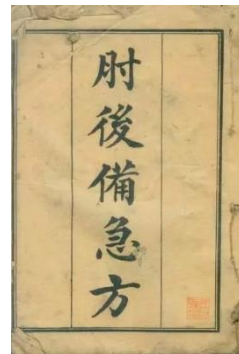 肘後備急方